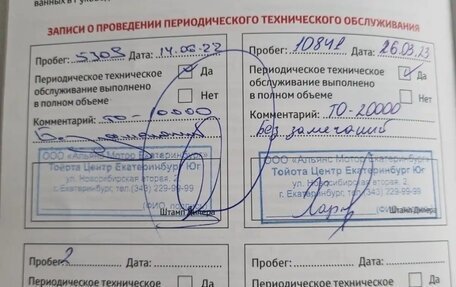 ЗАПИСИ О ПРОВЕДЕНИИ ПЕРИОДИЧЕСКОГО ТЕХНИЧЕСКОГО ОБСЛУЖИВАНИЯ
Пробег: 5308 Дата: 14.06.22
Периодическое техническое
обслуживание выполнено
в полном объеме
Да
Нет
Комментарий: ТО-10000
ООО «Альянс Мотор Екатеринбург»
Тойота Центр Екатеринбург Юг
ул. Новосибирская вторая, 2
г. Екатеринбург, тел.(343) 229-99-99
Штамп Дилера
Пробег: 10841 Дата: 26.03.23
Периодическое техническое
обслуживание выполнено
в полном объеме
Да
Нет
Комментарий: ТО-20000
Без замечаний
ООО «Альянс Мотор Екатеринбург»
Тойота Центр Екатеринбург Юг
ул. Новосибирская вторая, 2
г. Екатеринбург, тел. (343) 229-99-99
Штамп Дилера
Пробег: Дата:
Периодическое техническое
Да
Пробег: Дата:
Периодическое техническое
Да